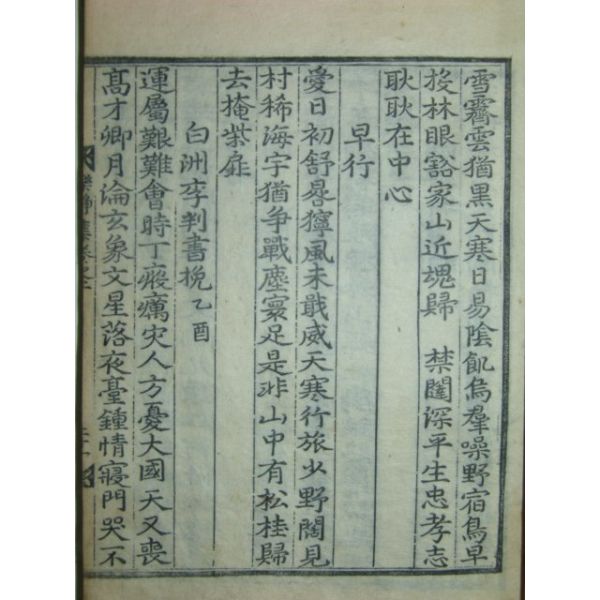 雪霽雲猶黑天寒日易陰飢烏羣噪野宿鳥早
投林眼豁家山近魂歸 禁闥深平生忠孝志
耿耿在中心
早行
愛日初舒晷獰風未戢威天寒行旅少野闊見
村稀海宇猶爭戰塵寰足是非山中有松桂歸
去掩柴扉
白洲李判書挽 乙酉
運屬艱難會時丁瘢癘灾人方憂大國天又喪
高才卿月淪玄象文星落夜臺鍾情寢門哭不